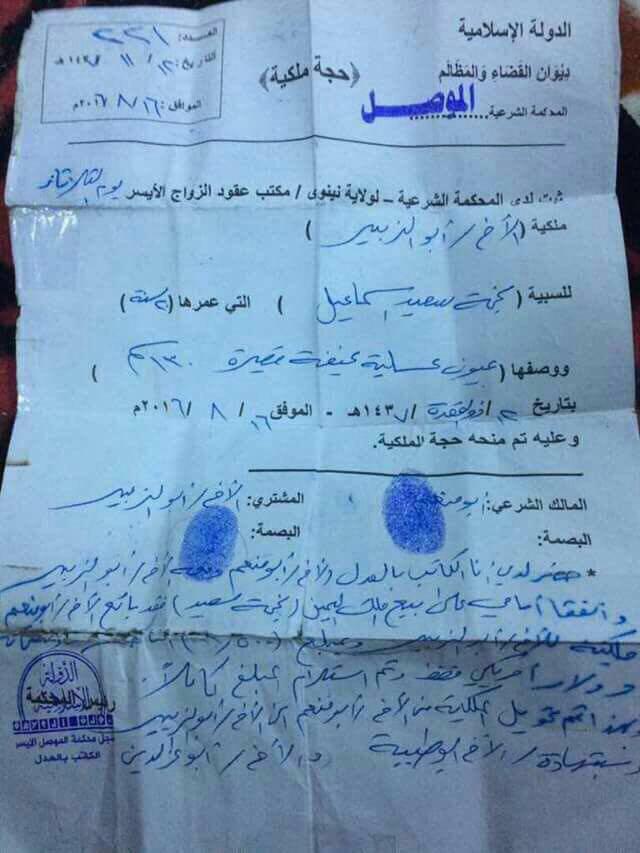 الدولة الإسلامية
ديوان القضاء والمظالم
المحكمة الشرعية الموصل
﴿ حجة ملكية ﴾
العدد: ٢٢١
التاريخ: ١٢ / ١١ / ١٤٣٧ هـ
الموافق: ١٦ / ٨ / ٢٠١٦م
ثبت لدى المحكمة الشرعية – لولاية نينوى / مكتب عقود الزواج الأيسر يوم
ملكية ( الأخ / أبو الزبير )
للسبية ( نجمة سعيد اسماعيل ) التي عمرها ( سنة )
ووصفها ( عيون عسلية نحيفة قصيرة ١٣٠ سم )
بتاريخ ١٢ / ذو القعدة / ١٤٣٧هـ - الموفق ١٦ / ٨ / ٢٠١٦م
وعليه تم منحه حجة الملكية.
المالك الشرعي: أبو منعم
المشتري: الأخ / أبو الزبير
البصمة:
البصمة:
* حضر لدي أنا الكاتب بالعدل الأخ / أبو منعم ومعه أخ / أبو الزبير
واتفقا أمامي على بيع ملك اليمين ( نجمة سعيد ) فقد باع الأخ / أبو منعم
ملكيته للأخ / أبو الزبير وبمبلغ
دولار أمريكي فقط وتم استلام المبلغ كاملاً
وبهذا تم تحويل الملكية من الأخ / أبو منعم الى الأخ / أبو الزبير
وبشهادة / الأخ والأخ / أبو عز الدين
الدولة الإسلامية
سجل محكمة الموصل الايسر
الكاتب بالعدل